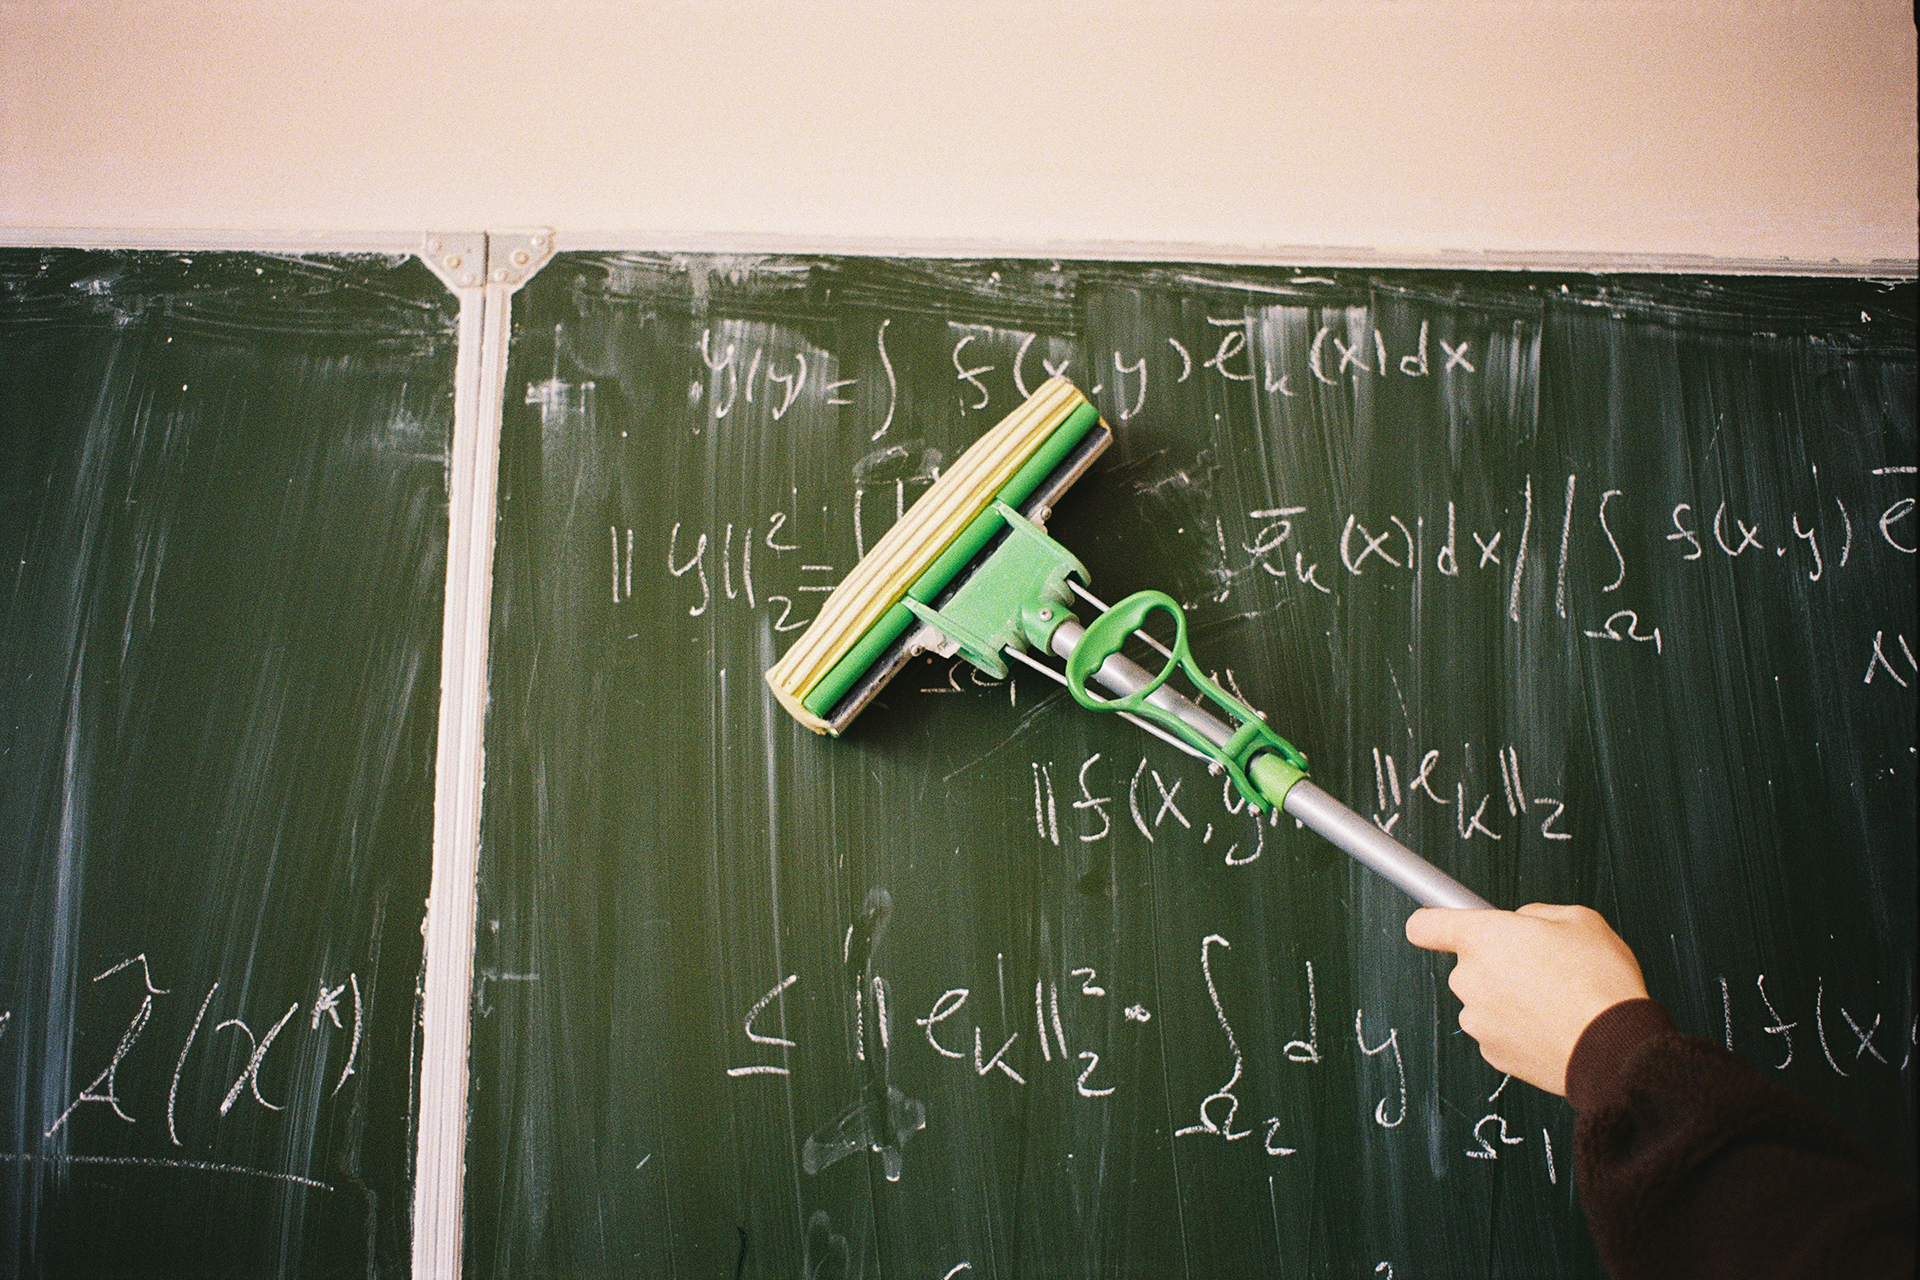 y(y) = ∫ f(x,y) ē_k(x)dx
||y||₂² = ē_k(x)|dx| |∫_Ω₁ f(x,y) ē
||f(x,y ||e_k||₂
≤ ||e_k||₂² · ∫_Ω₂ dy Ω₁ |f(x,
Â(x*)